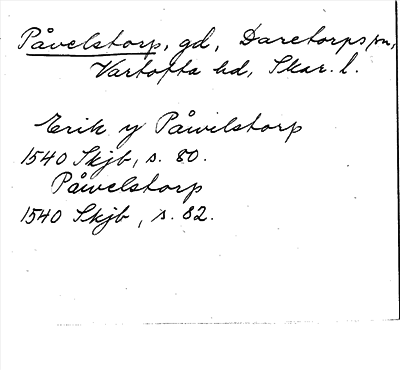 Påvelstorp, gd, Daretorps sn,
Vartofta hd, Skar. l.
Erik y Påwilstorp
1540 Skjb, s. 80.
Påwelstorp
1540 Skjb, s. 82.